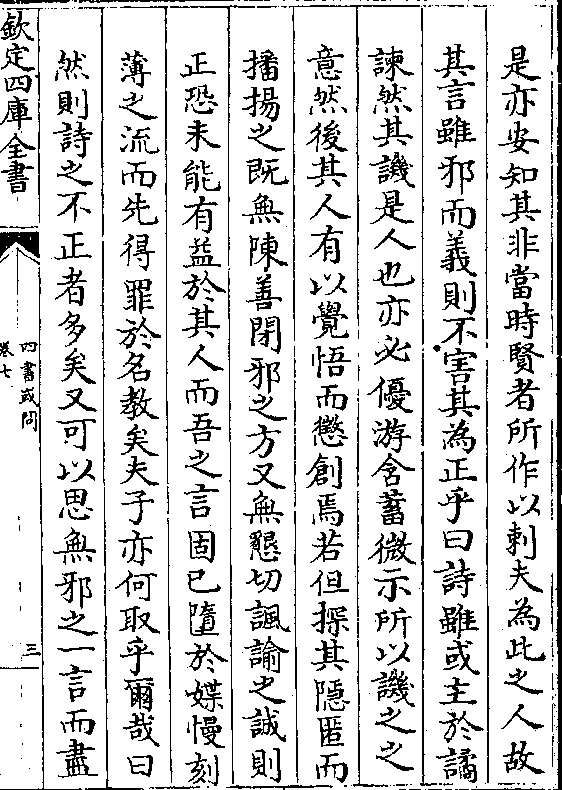 是亦安知其非當時賢者所作以刺夫為此之人故
其言雖邪而義則不害其為正乎曰詩雖或主於譎
諫然其譏是人也亦必優游含蓄微示所以譏之之
意然後其人有以覺悟而懲創焉若但探其隱匿而
播揚之既無陳善閉邪之方又無懇切諷諭之誠則
正恐未能有益於其人而吾之言固已墮於媟慢刻
薄之流而先得罪於名教矣夫子亦何取乎爾哉曰
然則詩之不正者多矣又可以思無邪之一言而盡
欽定四庫全書
四書或問
卷七
三